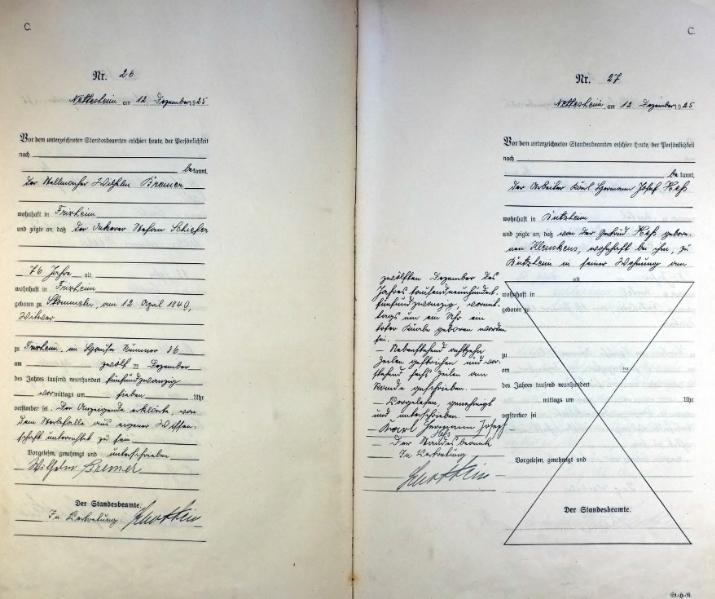 C.
Nr. 26
Nettesheim am 12 Dezember 1925
Vor dem unterzeichneten Standesbeamten erschien heute, der Persönlichkeit
nach
bekannt,
der Stellmacher Wilhelm Bremer
wohnhaft in Frixheim
und zeigte an, daß der Ackerer Stefan
76 Jahre alt
wohnhaft in Frixheim
geboren zu am 12 April 1849,
Witwer
zu Frixheim, im Hause Nummer 36
am zwölf ten Dezember
des Jahres tausend neunhundert fünfundzwanzig
vormittags um sieben Uhr
verstorben sei. Der Anzeigende erklärte, von
dem Sterbefalle aus eigener Wissen-
schaft unterrichtet zu sein
Vorgelesen, genehmigt und unterschrieben
Wilhelm Bremer
Der Standesbeamte.
In Vertretung
C.
Nr. 27
Nettesheim am 12 Dezember 1925
Vor dem unterzeichneten Standesbeamten erschien heute, der Persönlichkeit
nach
bekannt,
der Arbeiter Karl Hermann Josef
wohnhaft in Butzheim
und zeigte an, daß von der Gertrud gebore-
nen wohnhaft bei ihm, zu
Butzheim in seiner Wohnung am
alt
zwölften Dezember des
Jahres tausendneunhundert-
fünfundzwanzig, vormit-
tags um ein Uhr ein
toter Knabe geboren worden
sei.
- Nebenstehend achtzehn
Zeilen gestrichen und vor-
stehend sechs Zeilen am
Rande geschrieben. -
- Vorgelesen, genehmigt
und unterschrieben
Karl Hermann Josef
Der Standesbeamte
In Vertretung
wohnhaft in
geboren zu
zu
am ten
des Jahres tausend neunhundert
mittags um Uhr
verstorben sei
Vorgelesen, genehmigt und
Der Standesbeamte.